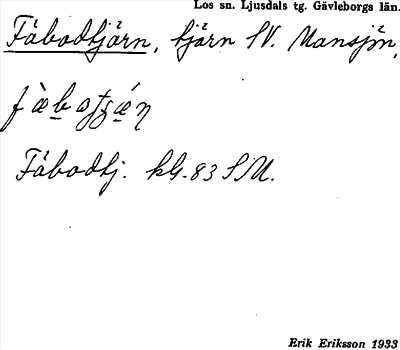 Los sn. Ljusdals tg. Gävleborgs län.
Fäbodtjärn, tjärn SV. Mansjön,
Fäbodtj. kbl. 83 SM.
Erik Eriksson 1933